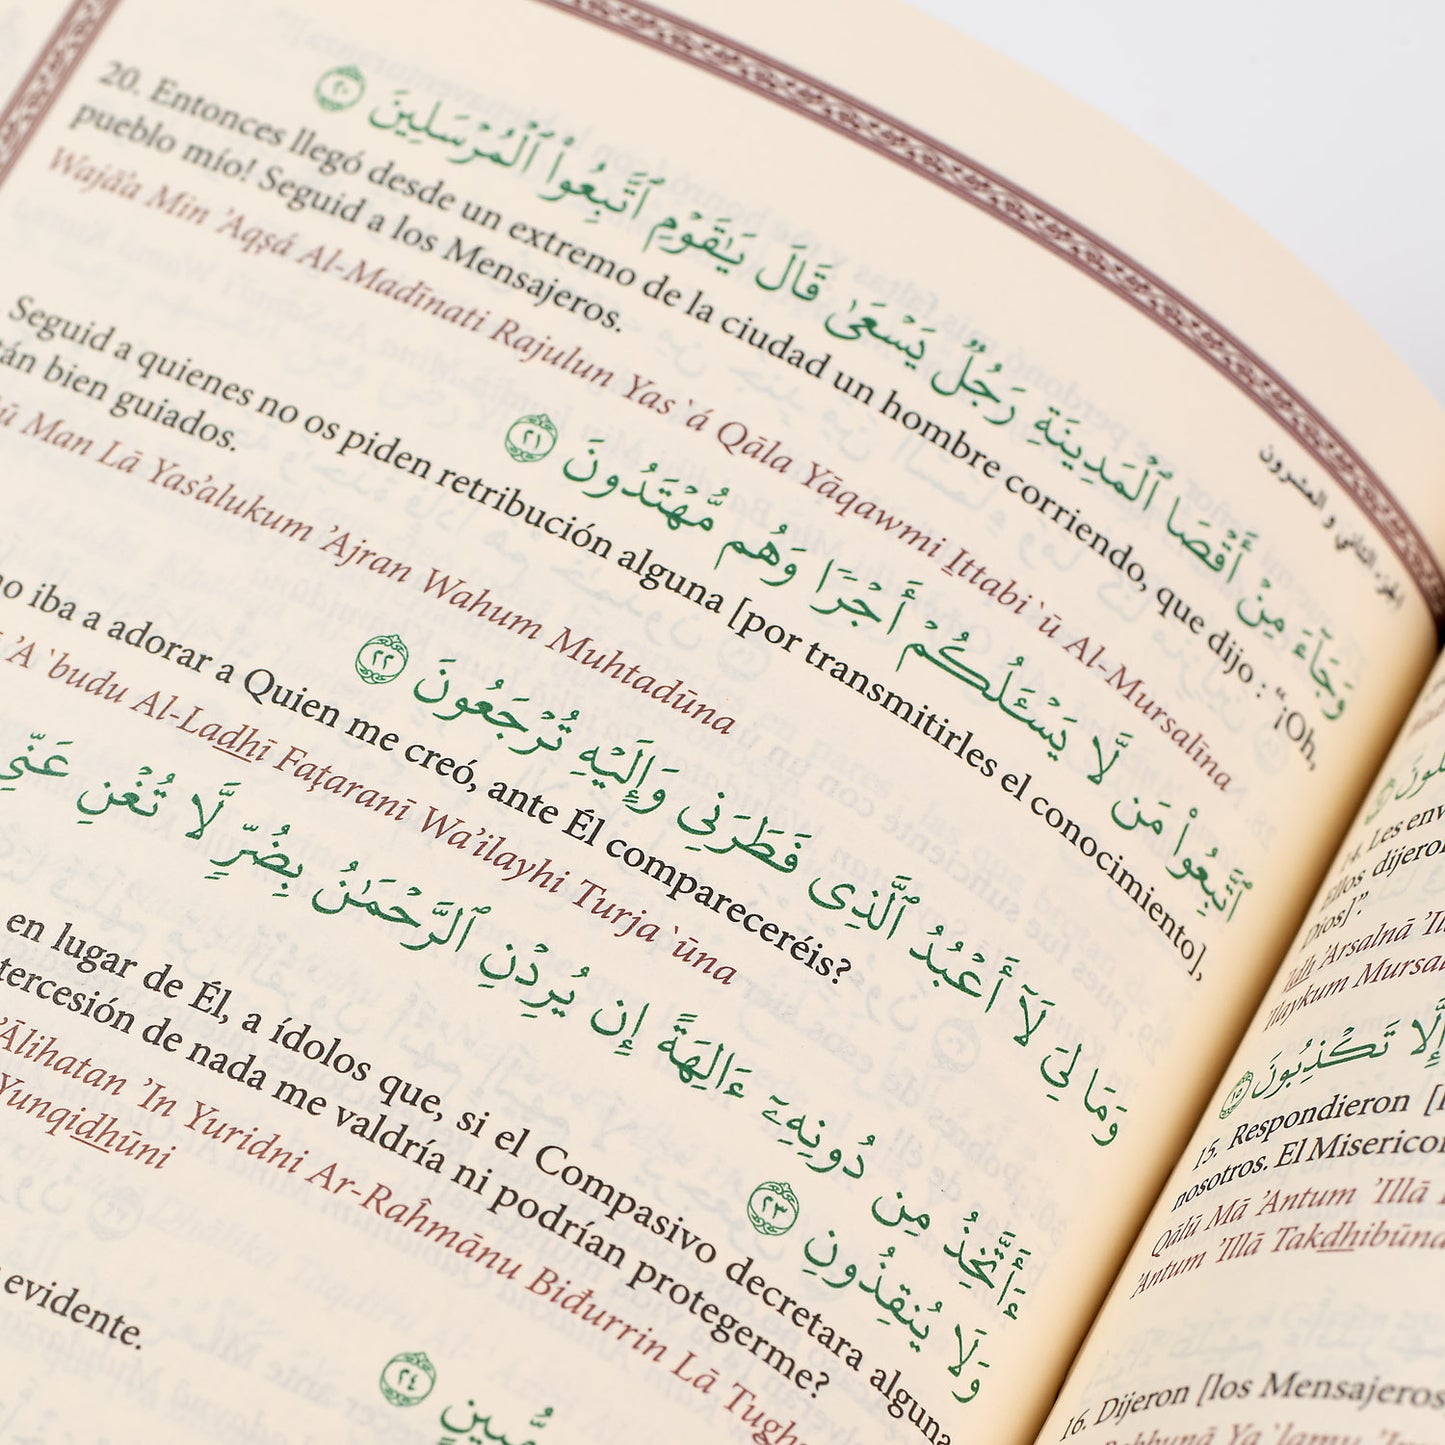 الجزء الثاني و العشرون
وَجَآءَ مِنْ أَقْصَا ٱلْمَدِينَةِ رَجُلٌ يَسْعَىٰ قَالَ يَٰقَوْمِ ٱتَّبِعُوا۟ ٱلْمُرْسَلِينَ ٢٠
20. Entonces llegó desde un extremo de la ciudad un hombre corriendo, que dijo : “¡Oh,
pueblo mío! Seguid a los Mensajeros.
Wajā'a Min 'Aqşá Al-Madīnati Rajulun Yas`á Qāla Yāqawmi Ittabi`ū Al-Mursalīna
ٱتَّبِعُوا۟ مَن لَّا يَسْـَٔلُكُمْ أَجْرًا وَهُم مُّهْتَدُونَ ٢١
Seguid a quienes no os piden retribución alguna [por transmitirles el conocimiento],
bien guiados.
Man Lā Yas'alukum 'Ajran Wahum Muhtadūna
وَمَا لِىَ لَآ أَعْبُدُ ٱلَّذِى فَطَرَنِى وَإِلَيْهِ تُرْجَعُونَ ٢٢
iba a adorar a Quien me creó, ante Él compareceréis?
'A`budu Al-Ladhī Faţaranī Wa'ilayhi Turja`ūna
ءَأَتَّخِذُ مِن دُونِهِۦٓ ءَالِهَةً إِن يُرِدْنِ ٱلرَّحْمَٰنُ بِضُرٍّ لَّا تُغْنِ عَنِّى
وَلَا يُنقِذُونِ ٢٣
en lugar de Él, a ídolos que, si el Compasivo decretara alguna
de nada me valdría ni podrían protegerme?
'Ālihatan 'In Yuridni Ar-Raĥmānu Biđurrin Lā
Yunqidhūni
٢٤
evidente.
14. Les
Ellos
Dios]”.
'Arsalnā
Mursa
إِلَّا تَكْذِبُونَ ١٥
15. Respondieron
nosotros. El
Qālū Mā 'Antum 'Illā
'Antum 'Illā Takdhibūna
16. Dijeron [los Mensajeros
Ya`lamu